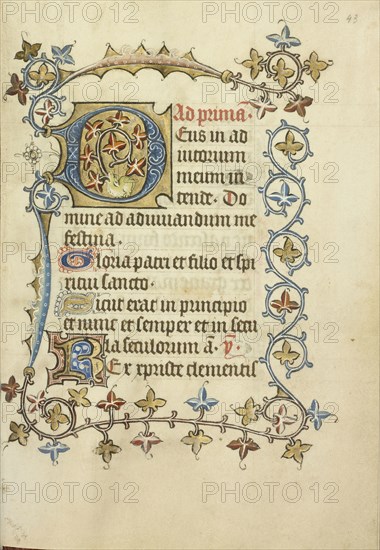 43
Ad prima
Deus in ad
iutorum
meum in
tende. Do
mine ad adiuuandum me
festina.
Gloria patri et filio et spi
ritui sancto.
Sicut erat in principio
et nunc et semper et in secu
la seculorum a. 
Rex xpiste clementis
PHOTO 12